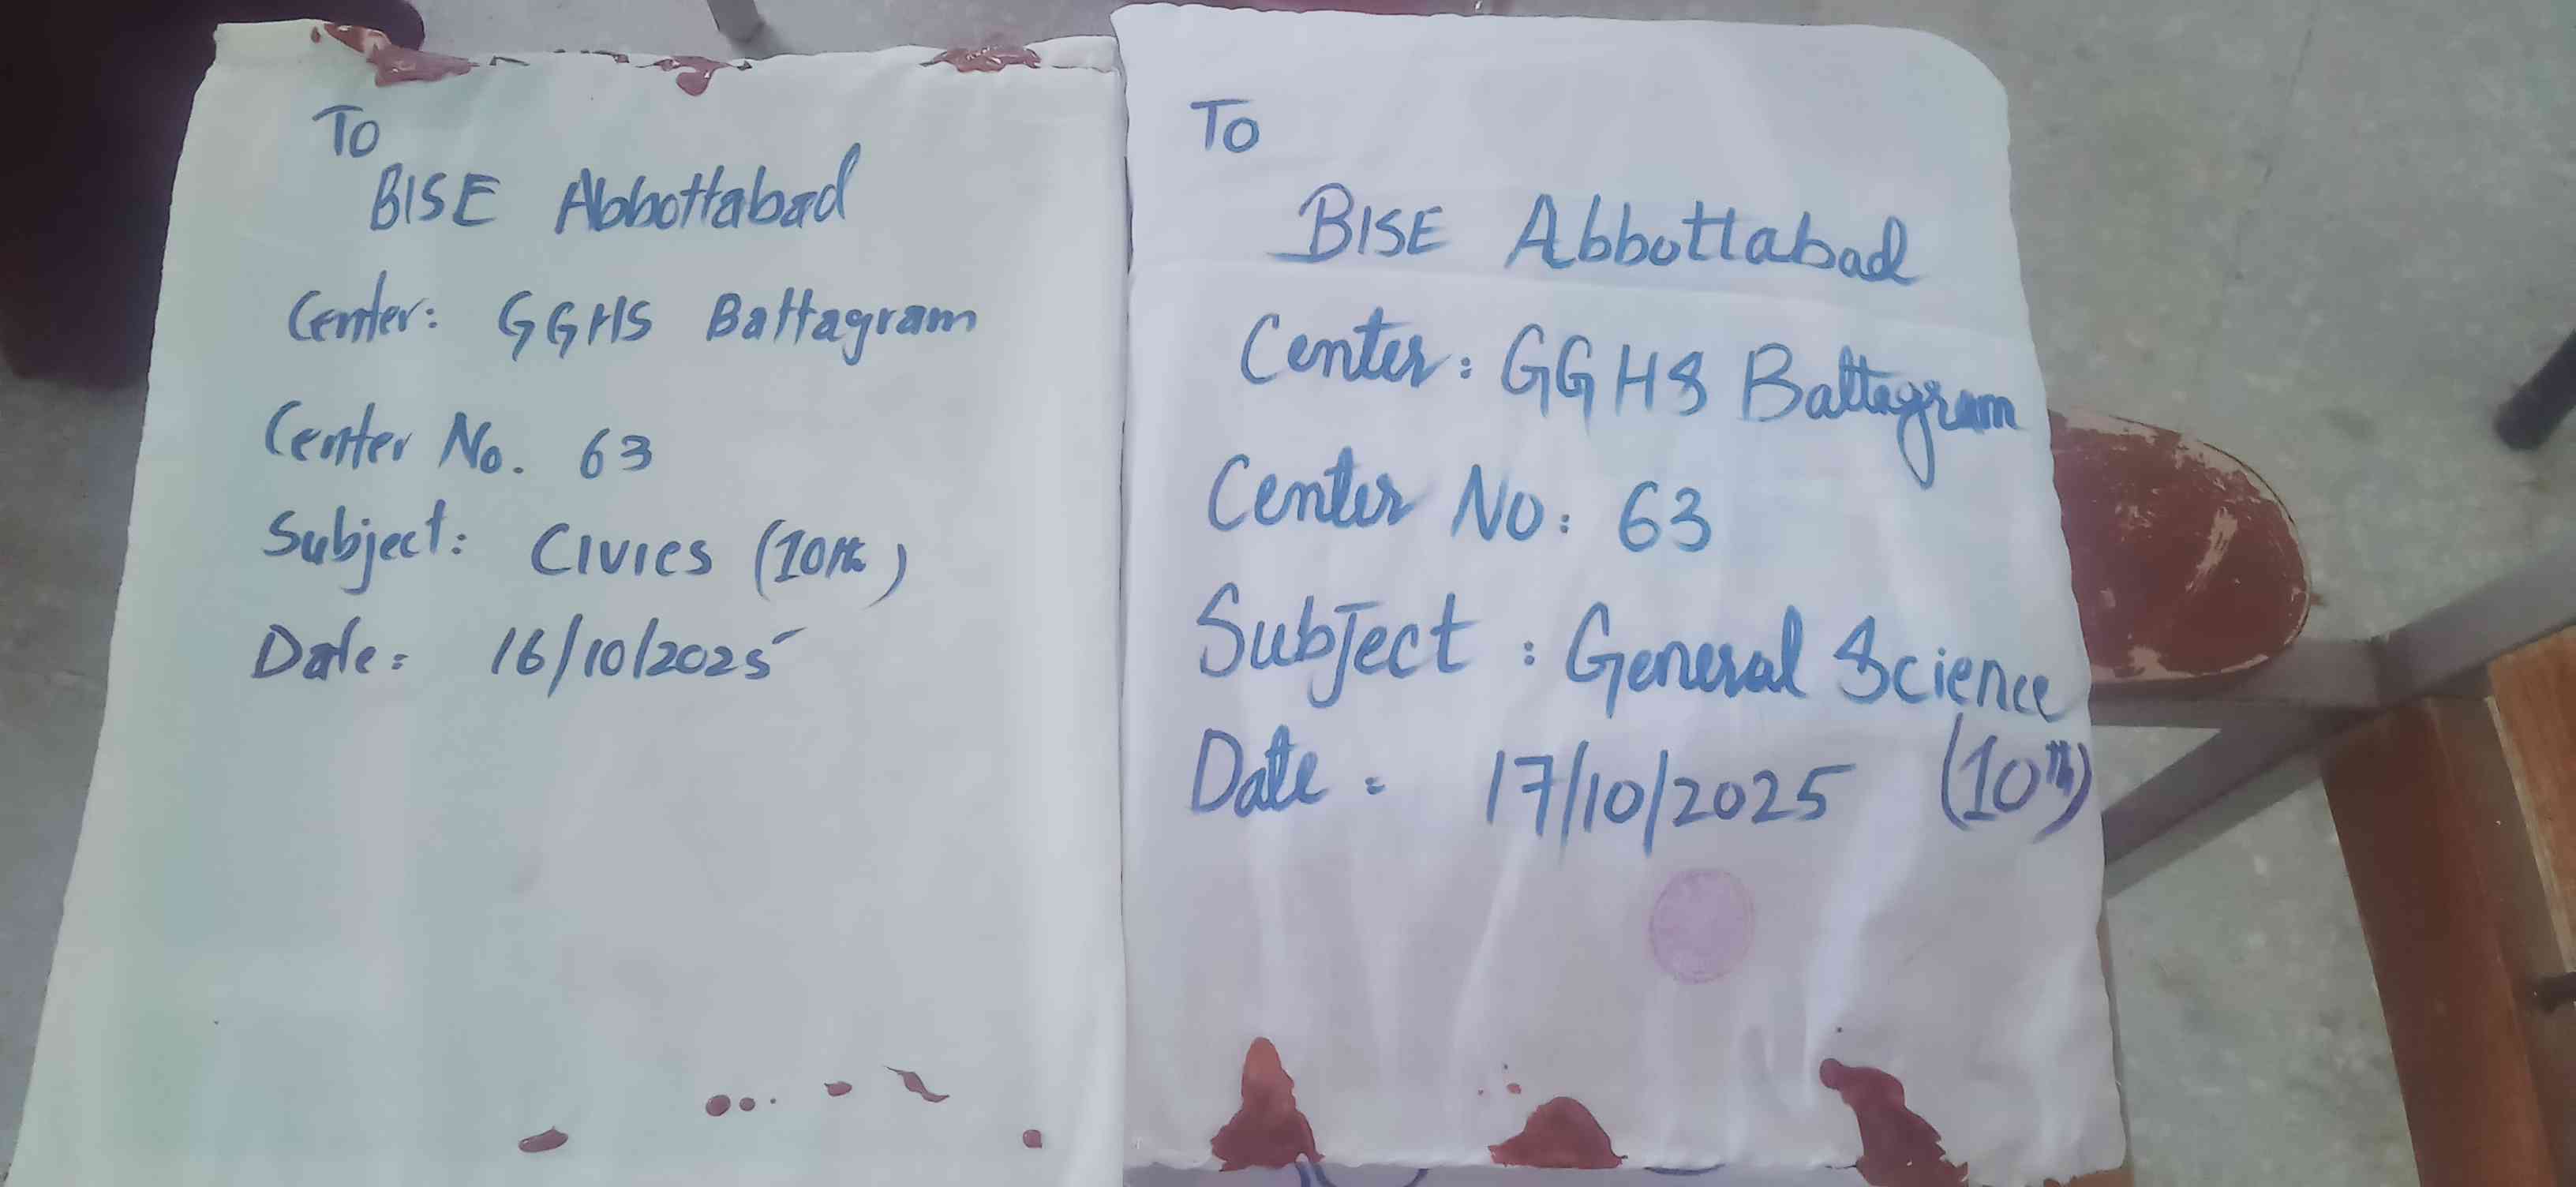 To
BISE Abbottabad
Center: GGHS Battagram
Center No. 63
Subject: Civics (10th)
Date: 16/10/2025
To
BISE Abbottabad
Center: GGHS Battagram
Center No: 63
Subject: General Science
(10th)
Date: 17/10/2025